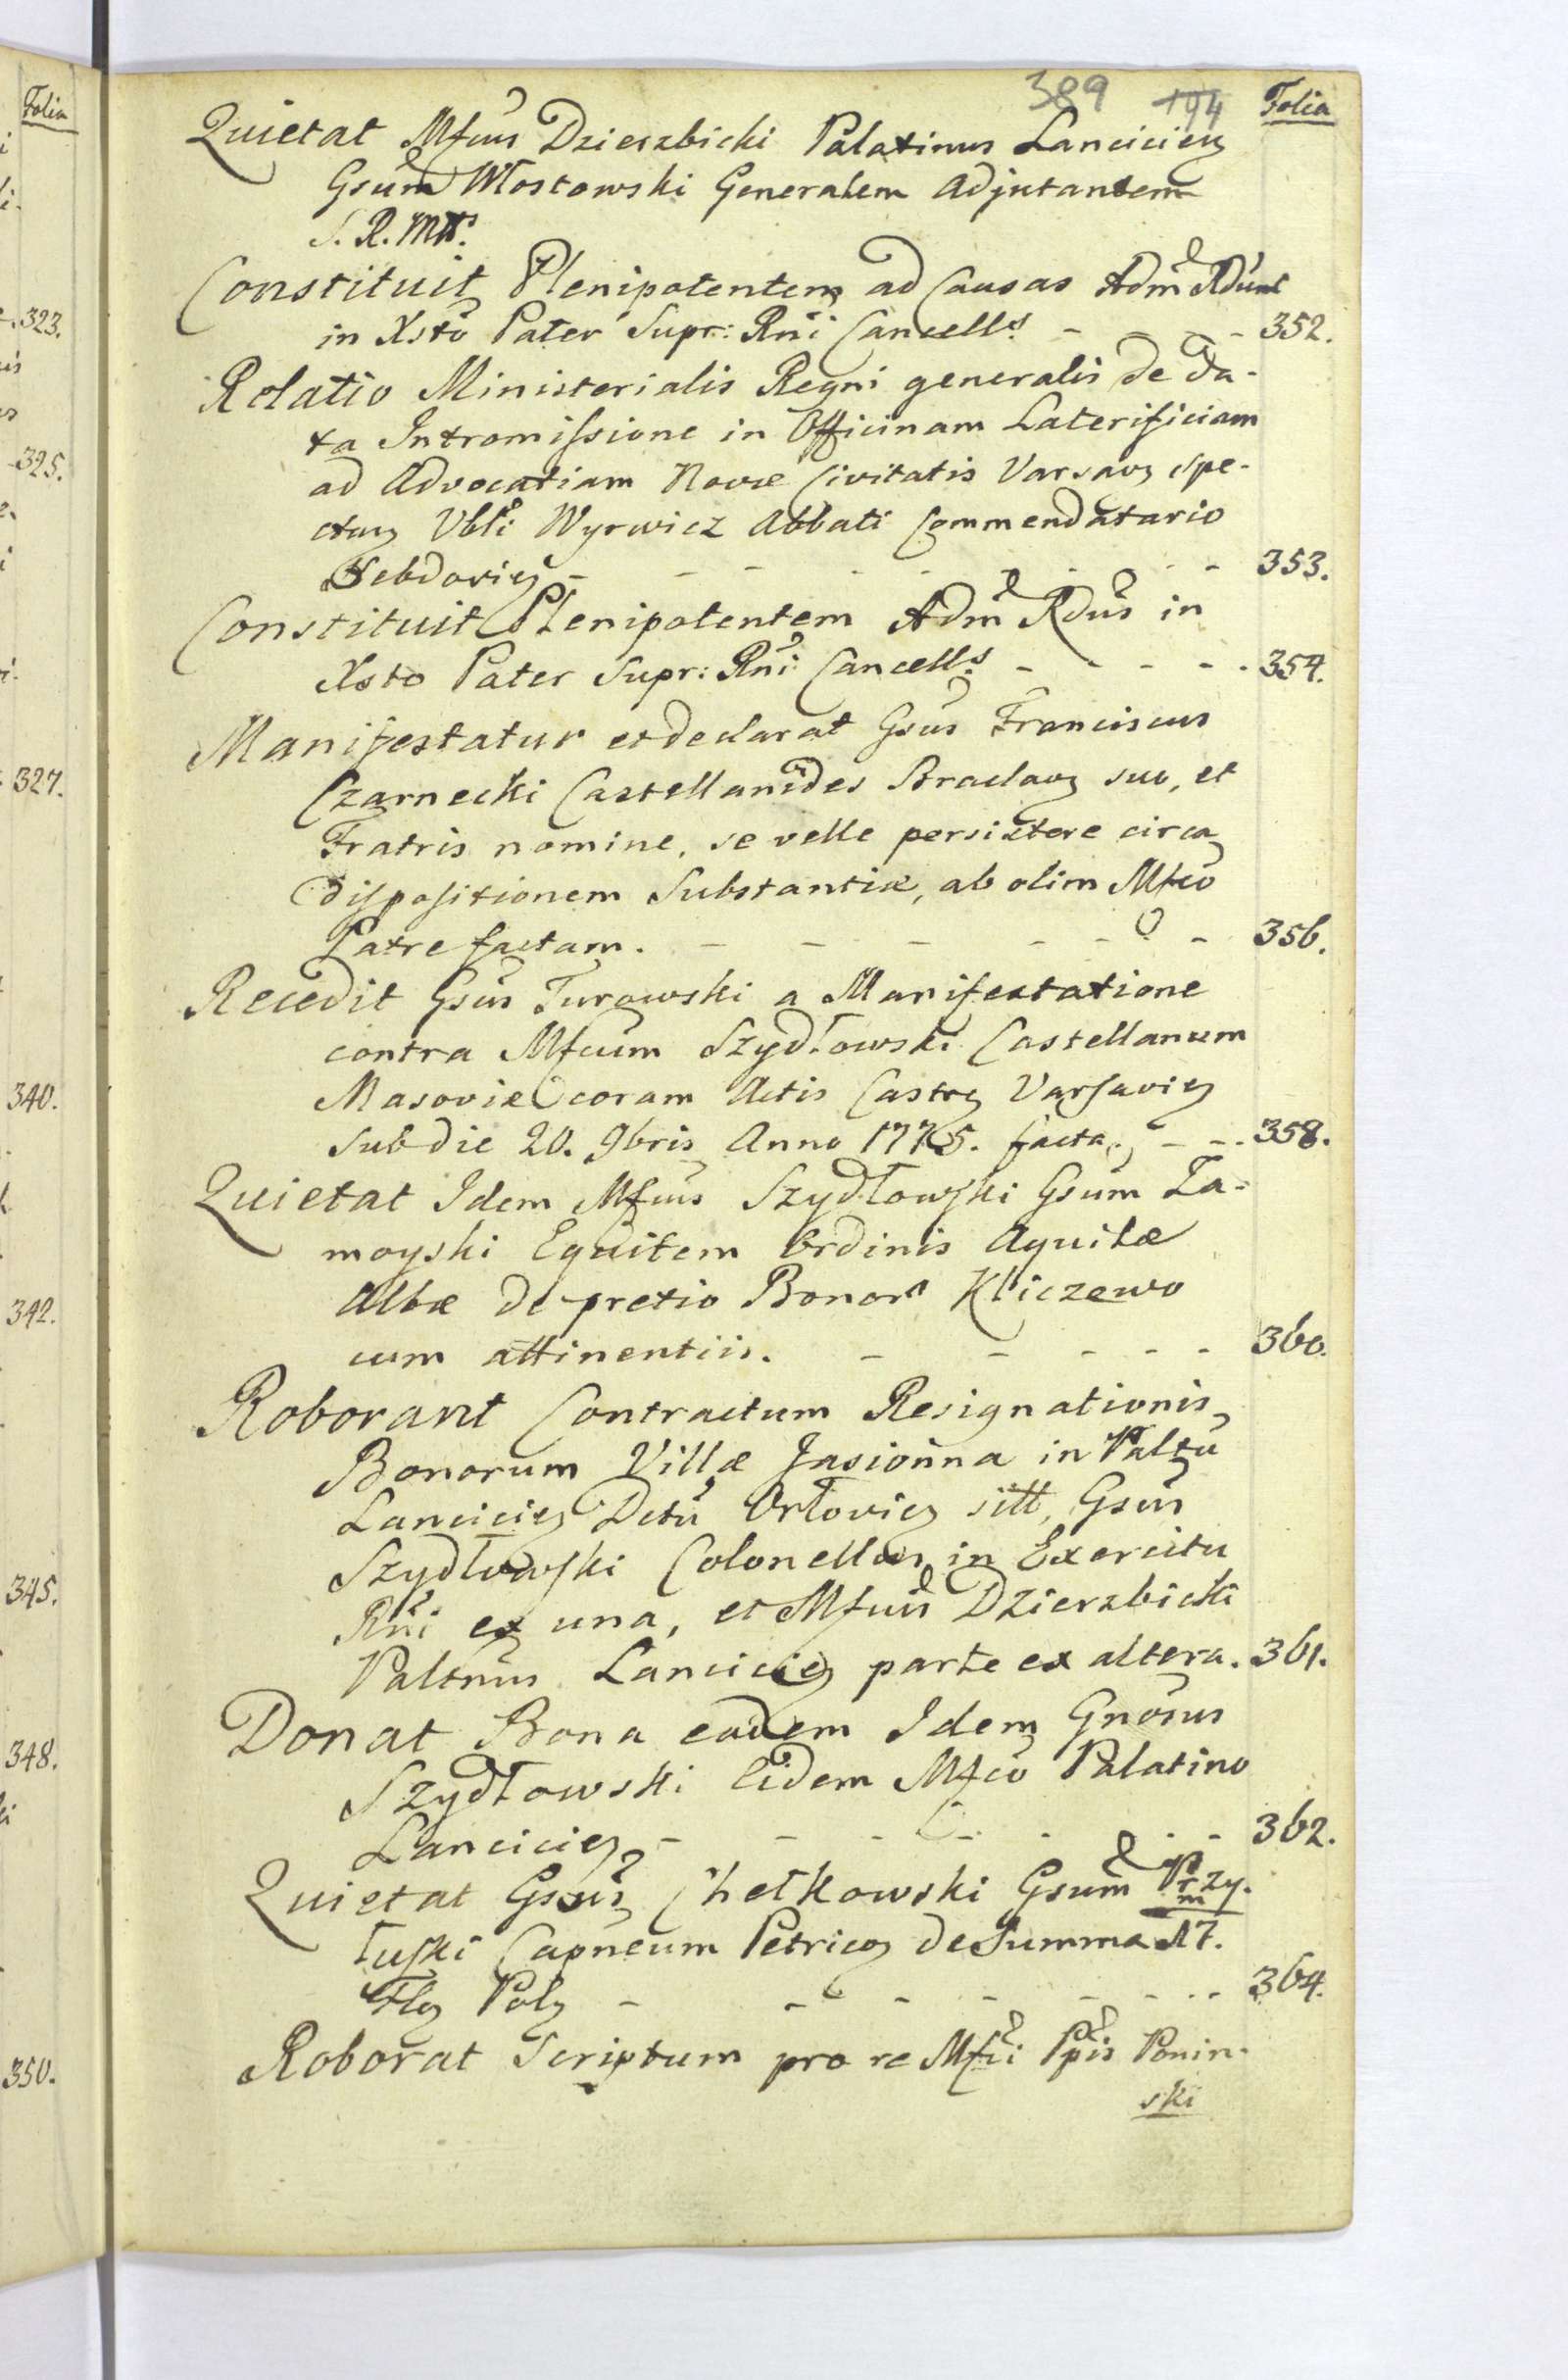 389 194 Folia
Quietat Mfcus Dzierzbicki Palatinus Lanciciens
Gsum Mostowski Generalem Adjutantem
S. R. Mtis.
Constituit Plenipotentem ad Causas Adm Rdus
in Xsto Pater Supr: Rni Cancells - - - 352.
Relatio Ministerialis Regni generalis de da-
ta Intromissione in Officinam Laterificiam
ad Advocatiam Novæ Civitatis Varsav spe-
ctan Vbli Wyrwicz Abbati Commendatario
Hebdovien - - - - - - 353.
Constituit Plenipotentem Adm Rdus in
Xsto Pater Supr: Rni Cancells - - - - - 354.
Manifestatur et declarat Gsus Franciscus
Czarnecki Castellanides Braclav suo, et
Fratris nomine, se velle persistere circa
dispositionem Substantiæ, ab olim Mfco
Patre factam. - - - - - - 356.
Recedit Gsus Turowski a Manifestatione
contra Mfcum Szydłowski Castellanum
Masoviæ coram Actis Castren Varsavien
sub die 20. 9bris Anno 1775. facta. - - 358.
Quietat Idem Mfcus Szydłowski Gsum Za-
moyski Equitem Ordinis Aquilæ
Albæ de pretio Bonor Kliczewo
cum attinentiis. - - - - - 360.
Roborant Contractum Resignationis
Bonorum Villæ Jasionna in Paltu
Lancicien Dctu Orłovien sitt, Gsus
Szydłowski Colonellus in Exercitu
Rni ex una, et Mfcus Dzierzbicki
Paltnus Lancicien parte ex altera. 361.
Donat Bona eadem Idem Gnosus
Szydłowski Eidem Mfco Palatino
Lancicien - - - - - - 362.
Quietat Gsus Chełkowski Gsum Przy-
łuski Capneum Petricov de Summa m/17.
Flen Poln - - - - - - 364.
Roborat Scriptum pro re Mfci Ppis Ponin-
ski
Folia
323.
325.
327.
340.
342.
345.
348.
350.